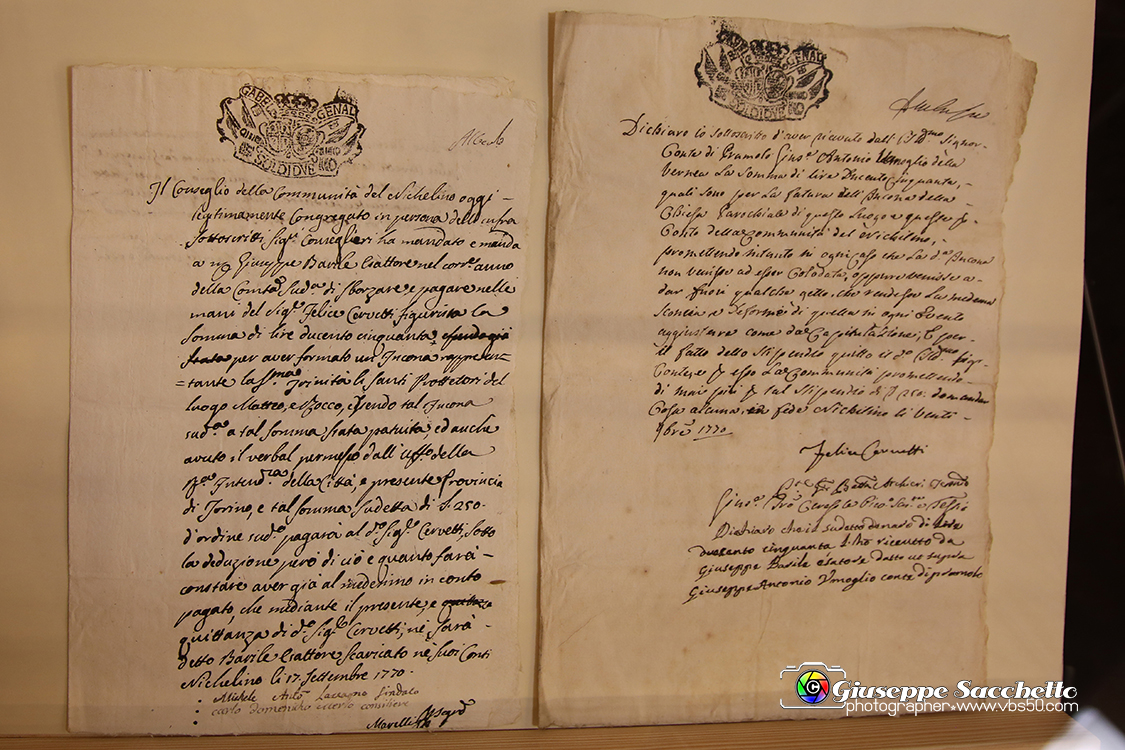 GABEL GENAL
SOLDI DVE
Il Conseglio della Communità del Nichelino oggi
legitimamente Congregato in persona dell' infra
sottoscritti Sig.ri Conseglieri ha mandato e manda
a me Giuseppe Barile Esattore nel corr.e anno
della Com.tà Sud.a di sborzare, e pagare nelle
mani del Sig.r Felice Cervetti figurista la
somma di lire ducento cinquanta
per aver formato un' Incona rappresen-
tante la SS.ma Trinità li Santi Protettori del
luogo Matteo, e Rocco, essendo tal Incona
sud.a a tal somma stata patuita, ed anche
avuto il verbal permesso dall' Uffo della
Intend.za della Città, e presente Provincia
di Torino, e tal somma sudetta di L. 250.
d'ordine sud.o pagarà al d.o Sig.r Cervetti, sotto
la deduzione però di ciò e quanto farà
constare aver già al medemmo in conto
pagato, che mediante il presente, e
quittanza di d.o Sig.r Cervetti, ne sarà
detto Barile Esattore scaricato ne suoi Conti
Nichelino li 17. Settembre 1770.
Michele Anto Sindaco
carlo domenico consiliere
Marelli Seg.ro
GABEL GENAL
SOLDI DVE
Dichiaro io sottoscritto d'aver ricevuto dall' Ill.mo Signor
Conte di Pramolo Gius.e Antonio Umoglio della
Vernea la somma di lire Ducento cinquanta,
quali sono per la fatura dell' Ancona della
Chiesa Parochiale di questo luogo a questo
Conto della Communità del Nichilino,
promettendo mitanto in ogni caso che la d.a Ancona
non venisse ad esser Colodata, oppure venisse a
dar fuori qualche getto, che rendesse la medema
sconcia e deforme di quella in ogni evento
aggiustare come da Capitulazione, e per
il fatto dello stipendio quitto il d.o Ill.mo Sig.r
Conte, e p. esso la Communità promettendo
di mai più p. tal stipendio di L 250. domandar
Cosa alcuna, in fede Nichilino li venti
7bre 1770
Felice Cervetti
Dichiaro che il sudetto denaro di Lire
duscento cinquanta l'ho ricevuto da
Giuseppe Barile esatore datto ut supra
Giuseppe Antonio Umoglio conte di pramolo
Giuseppe Sacchetto
photographer•www.vbs50.com